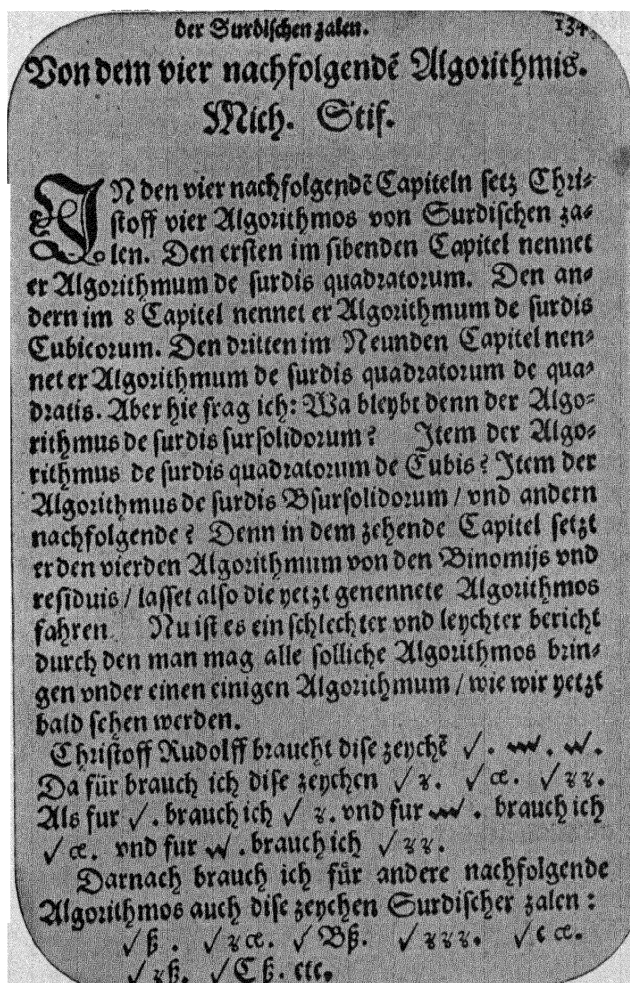 der Surdischen zalen. 134
Von dem vier nachfolgendē Algorithmis.
Mich. Stif.
IN den vier nachfolgendē Capiteln setz Chri⸗
stoff vier Algorithmos von Surdischen za⸗
len. Den ersten im sibenden Capitel nennet
er Algorithmum de surdis quadratorum. Den an⸗
dern im 8 Capitel nennet er Algorithmum de surdis
Cubicorum. Den dritten im Neunden Capitel nen⸗
net er Algorithmum de surdis quadratorum de qua⸗
dratis. Aber hie frag ich: Wa bleybt denn der Algo⸗
rithmus de surdis sursolidorum? Item der Algo⸗
rithmus de surdis quadratorum de Cubis? Item der
Algorithmus de surdis Bsursolidorum / vnd andern
nachfolgende? Denn in dem zehende Capitel setzt
er den vierden Algorithmum von den Binomijs vnd
residuis / lasset also die yetzt genennete Algorithmos
fahren. Nu ist es ein schlechter vnd leychter bericht
durch den man mag alle solliche Algorithmos brin⸗
gen vnder einen einigen Algorithmum / wie wir yetzt
bald sehen werden.
Christoff Rudolff braucht dise zeychē √. .
Da für brauch ich dise zeychen √ʒ. √ce. √ʒʒ.
Als fur √. brauch ich √ʒ. vnd fur . brauch ich
√ce. vnd fur . brauch ich √ʒʒ.
Darnach brauch ich für andere nachfolgende
Algorithmos auch dise zeychen Surdischer zalen:
√ß. √ʒce. √Bß. √ʒʒʒ. √c ce.
√ʒß. √Cß. etc.